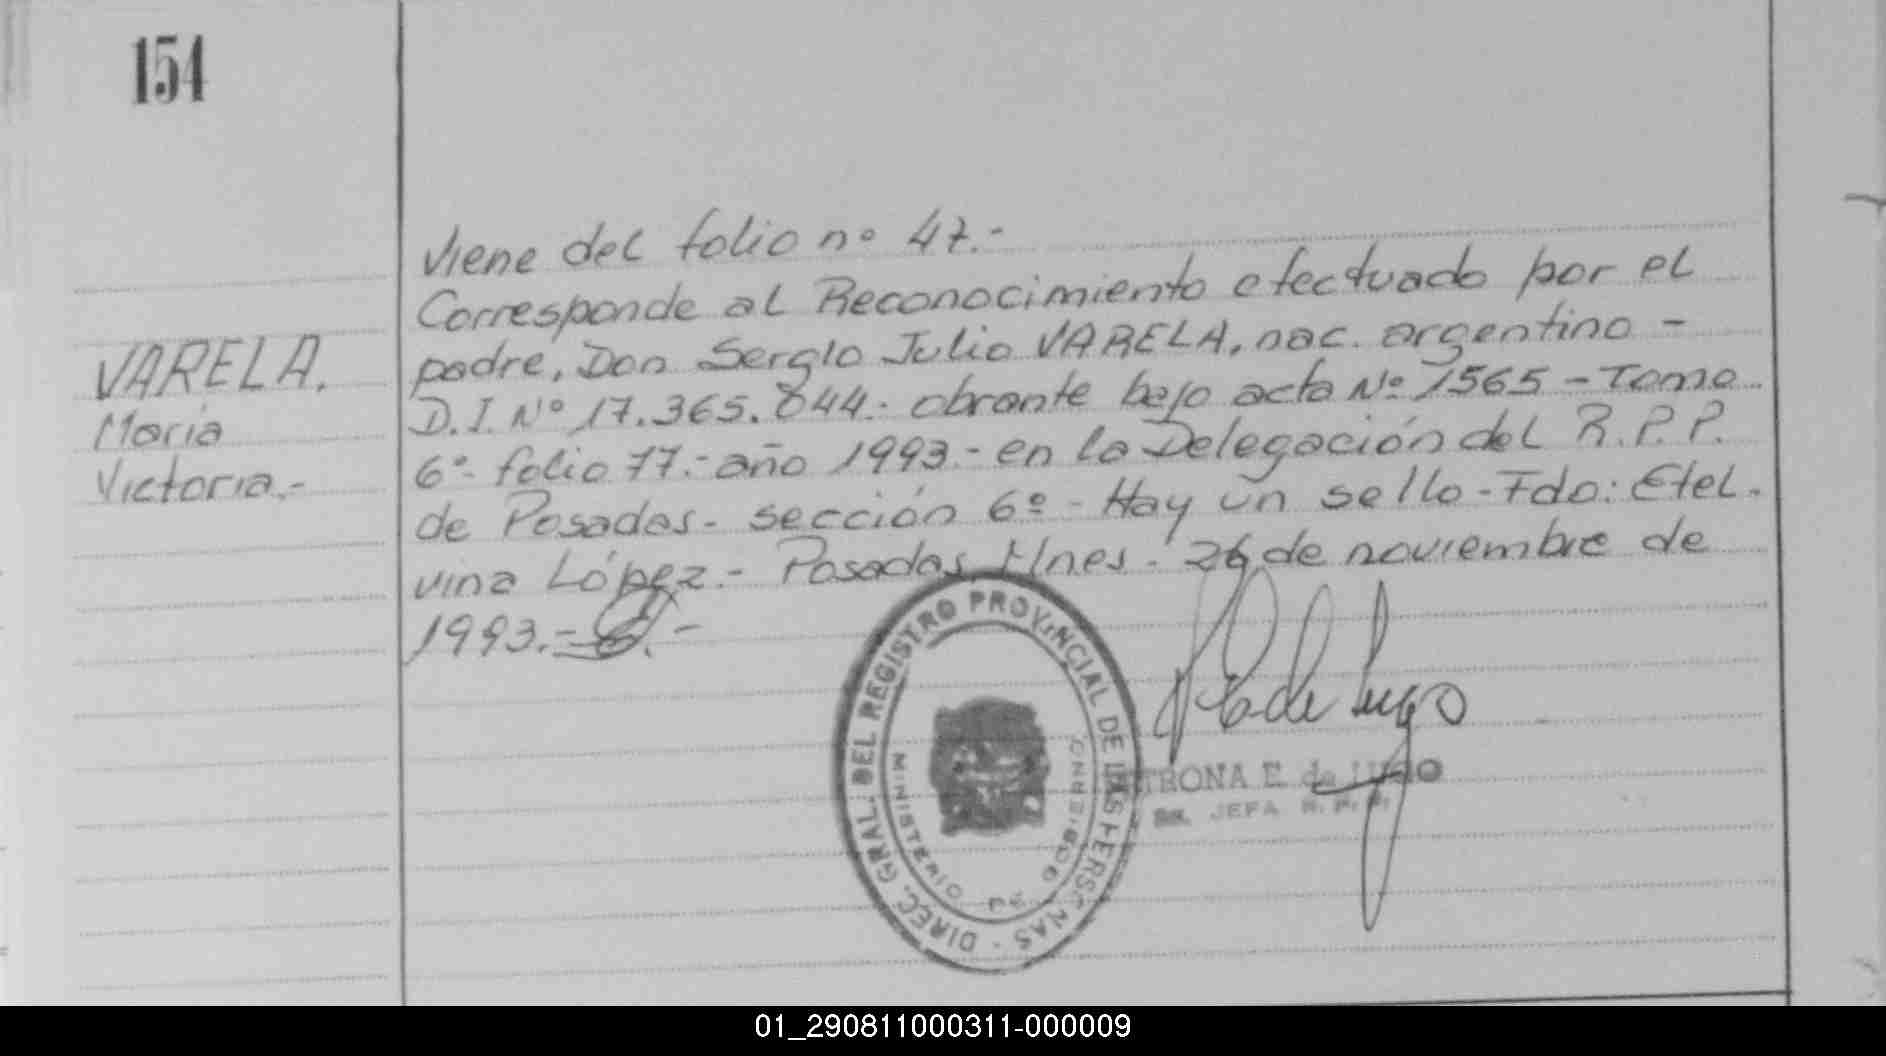 154
VARELA.
María
Victoria.-
Viene del folio nº 47.-
Corresponde al Reconocimiento efectuado por el
padre, Don Sergio Julio VARELA, nac. argentino -
D.I. Nº 17.365.844.- obrante bajo acta Nº 1565 - Tomo
6º- folio 77.- año 1993.- en la Delegación del R.P.P.
de Posadas.- sección 6º - Hay un sello - Fdo: Etel-
vina López.- Posadas, Mnes. 26 de noviembre de
1993.-
DIREC. GRAL. DEL REGISTRO PROVINCIAL DE LAS PERSONAS -
MINISTERIO DE GOBIERNO
E de Lugo
TRONA E. de LUGO
JEFA R. P. P.
01_290811000311-000009